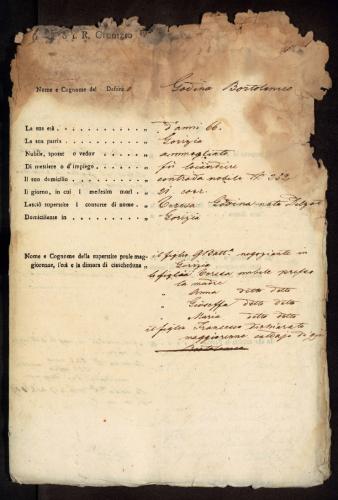 I. R. Giudizio
Nome e Cognome del Defunto Godina Bortolomeo
La sua età . . . . . . . . . . . . „ d'anni 66.
La sua patria . . . . . . . . . . . „ Gorizia
Nubile, sposo o vedovo . . . . . . . „ ammogliato
Di mestiere o d'impiego . . . . . . . „ fu locandiere
Il suo domicilio . . . . . . . . . . „ contrada nobile N. 252
Il giorno, in cui l medesim morì . . . „ 21 corr.
Lasciò superstite l consorte di nome . . „ Teresa Godina nata
Domiciliante in . . . . . . . . . . „ Gorizia
Nome e Cognome della superstite prole mag- il figlio G. Batt.ª negoziante in
giorenne, l'età e la dimora di ciascheduna „ Gorizia
le figlie Teresa nubile presso
la madre
„ Anna detto detto
„ Gioseffa detto detto
„ Maria detto detto
il figlio Francesco dichiarato
maggiorenne
Bortolomeo